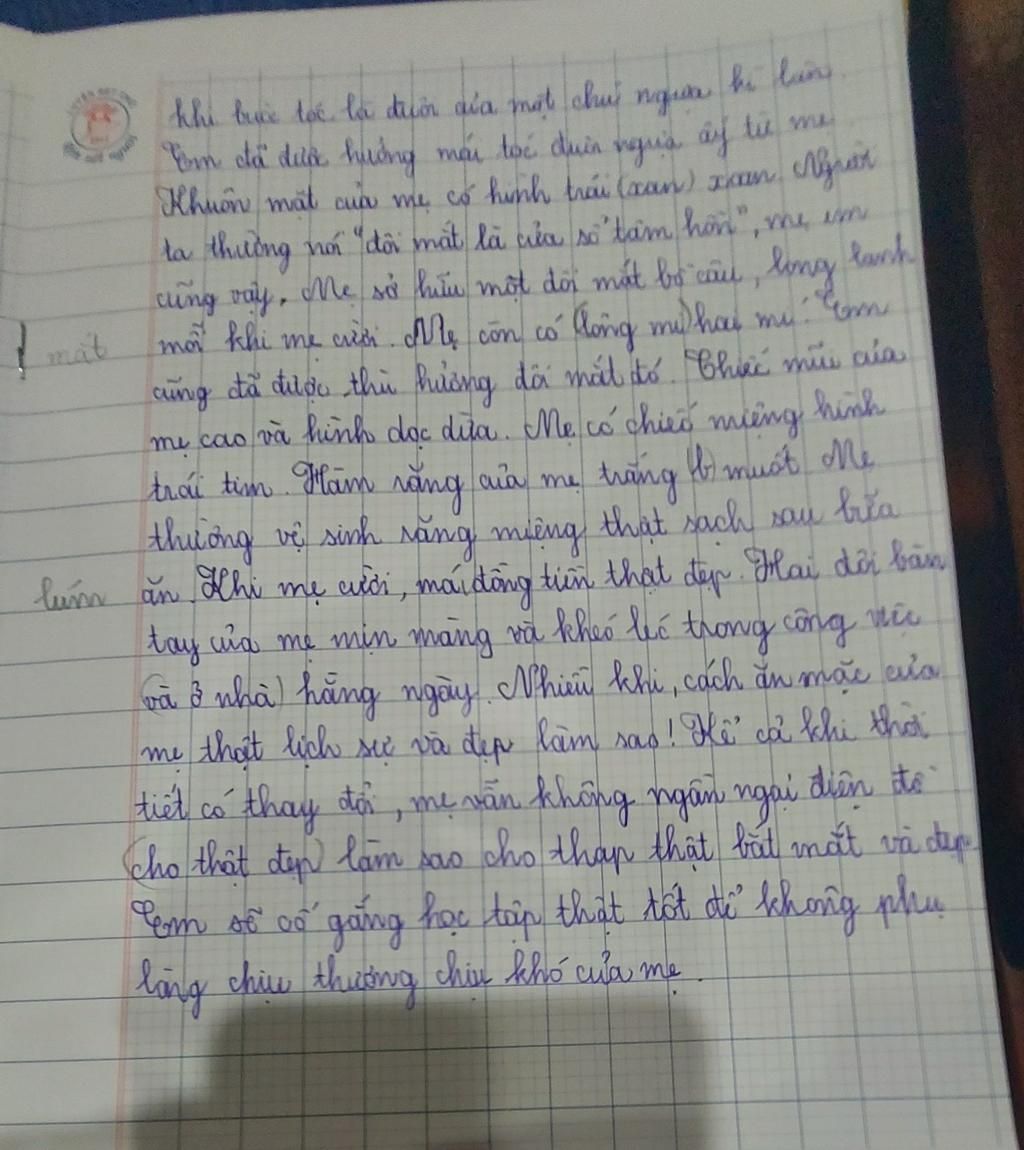 khi buộc tóc là đuôi của một chú ngựa
Em đã được hưởng mái tóc đuôi ngựa ấy từ mẹ
Khuôn mặt của mẹ có hình trái (xoan) xoan. Người
ta thường nói "đôi mắt là cửa sổ tâm hồn", mẹ em
cũng vậy. Mẹ sở hữu một đôi mắt bồ câu, long lanh
mắt mỗi khi mẹ cười. Mẹ còn có (lông mi) hai mí. Em
cũng đã được thừ hưởng đôi mắt đó. Chiếc mũi của
mẹ cao và hình dọc dừa. Mẹ có chiếc miệng hình
trái tim. Hàm răng của mẹ trắng (b) muốt. Mẹ
thường vệ sinh răng miệng thật sạch sau bữa
lúm ăn. Khi mẹ cười, má đồng tiền thật đẹp. Hai đôi bàn
tay của mẹ mịn màng và khéo léo trong công việc
(và ở nhà) hằng ngày. Nhiều khi, cách ăn mặc của
mẹ thật lịch sự và đẹp làm sao! Kể cả khi thời
tiết có thay đổi, mẹ vẫn không ngần ngại diện đồ
(cho thật đẹp) làm sao cho thạp thật bắt mắt và đẹp
Em sẽ cố gắng học tập thật tốt để không phụ
lòng chịu thương chịu khó của mẹ.